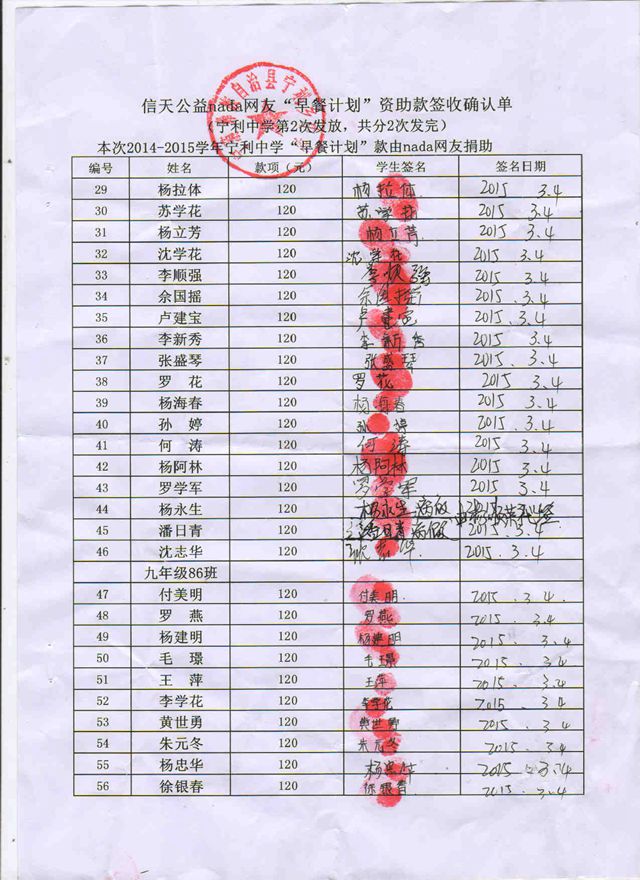 自治县宁利
信天公益nada网友“早餐计划”资助款签收确认单
（宁利中学第2次发放，共分2次发完）
本次2014-2015学年宁利中学“早餐计划”款由nada网友捐助
编号 姓名 款项（元） 学生签名 签名日期
29 杨拉体 120 杨拉体 2015 3.4
30 苏学花 120 苏学花 2015 3.4
31 杨立芳 120 杨立芳 2015 3.4
32 沈学花 120 沈学花 2015 3.4
33 李顺强 120 李顺强 2015 3.4
34 佘国摇 120 佘国摇 2015 3.4
35 卢建宝 120 卢建宝 2015 3.4
36 李新秀 120 李新秀 2015 3.4
37 张盛琴 120 张盛琴 2015 3.4
38 罗 花 120 罗花 2015 3.4
39 杨海春 120 杨海春 2015 3.4
40 孙 婷 120 孙婷 2015 3.4
41 何 涛 120 何涛 2015 3.4
42 杨阿林 120 杨阿林 2015 3.4
43 罗学军 120 罗学军 2015 3.4
44 杨永生 120 杨永生 病假
45 潘日青 120 潘日青 病假 2015 3.4
46 沈志华 120 沈志华 2015 3.4
九年级86班
47 付美明 120 付美明 2015 3.4
48 罗 燕 120 罗燕 2015 3.4
49 杨建明 120 杨建明 2015 3.4
50 毛 璟 120 毛璟 2015 3.4
51 王 萍 120 王萍 2015 3.4
52 李学花 120 李学花 2015 3.4
53 黄世勇 120 黄世勇 2015 3.4
54 朱元冬 120 朱元冬 2015 3.4
55 杨忠华 120 杨忠华 2015 3.4
56 徐银春 120 徐银春 2015 3.4